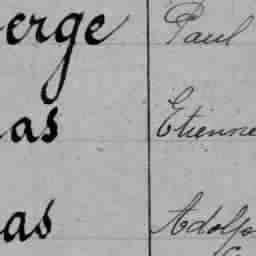 erge Paul
as Etienne
as Adolp